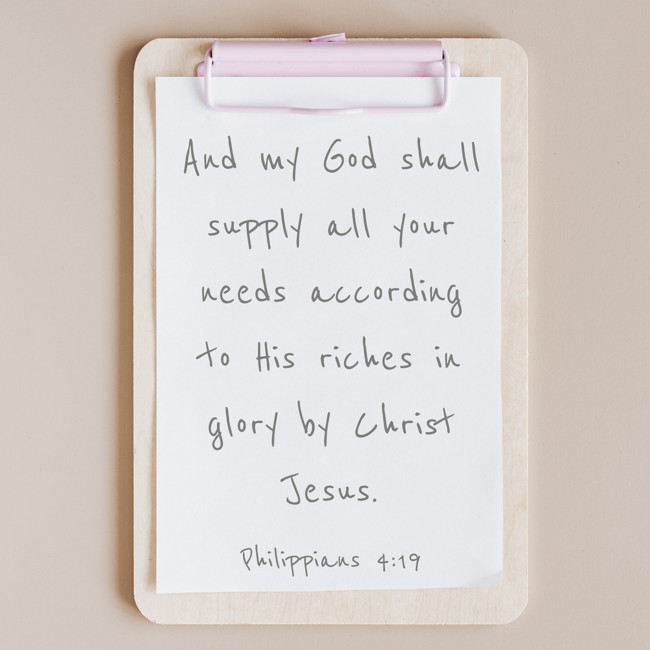 And my God shall
supply all your
needs according
to His riches in
glory by Christ
Jesus.
Philippians 4:19